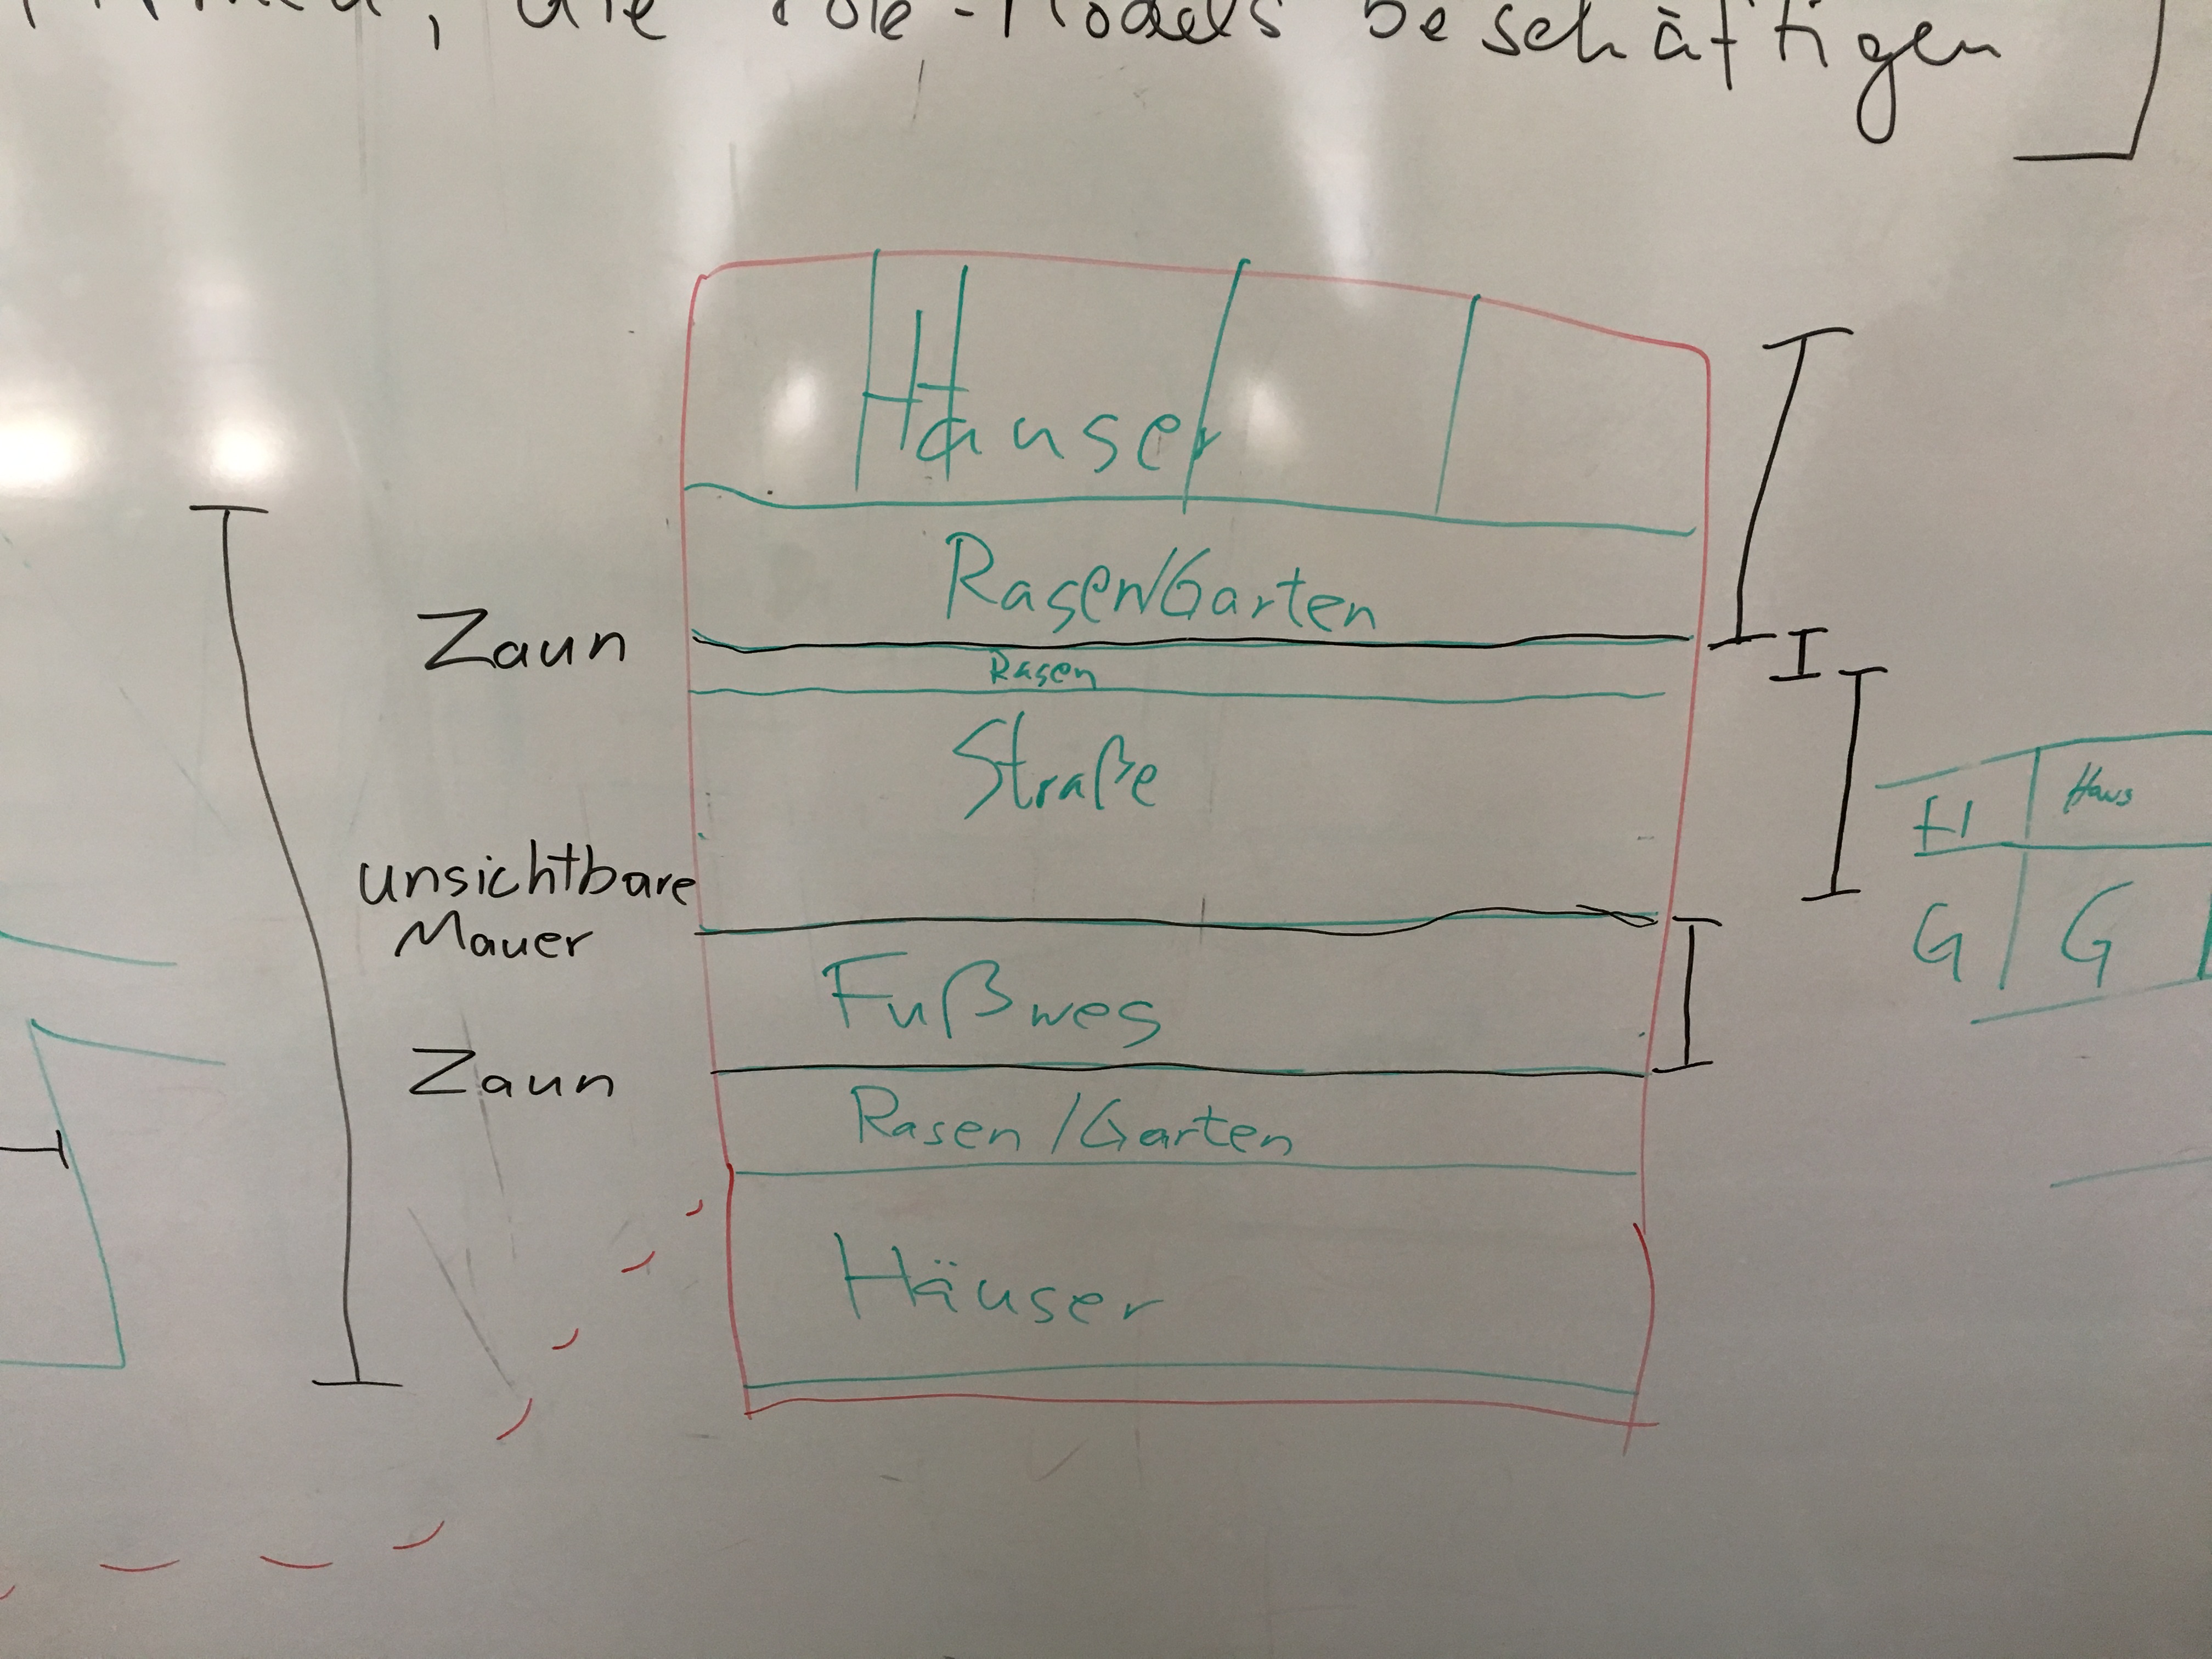 die Role-Models beschäftigen
Häuser
Rasen/Garten
Zaun
Rasen
Straße
Haus
unsichtbare
Mauer
G G
Fußweg
Zaun
Rasen/Garten
Häuser